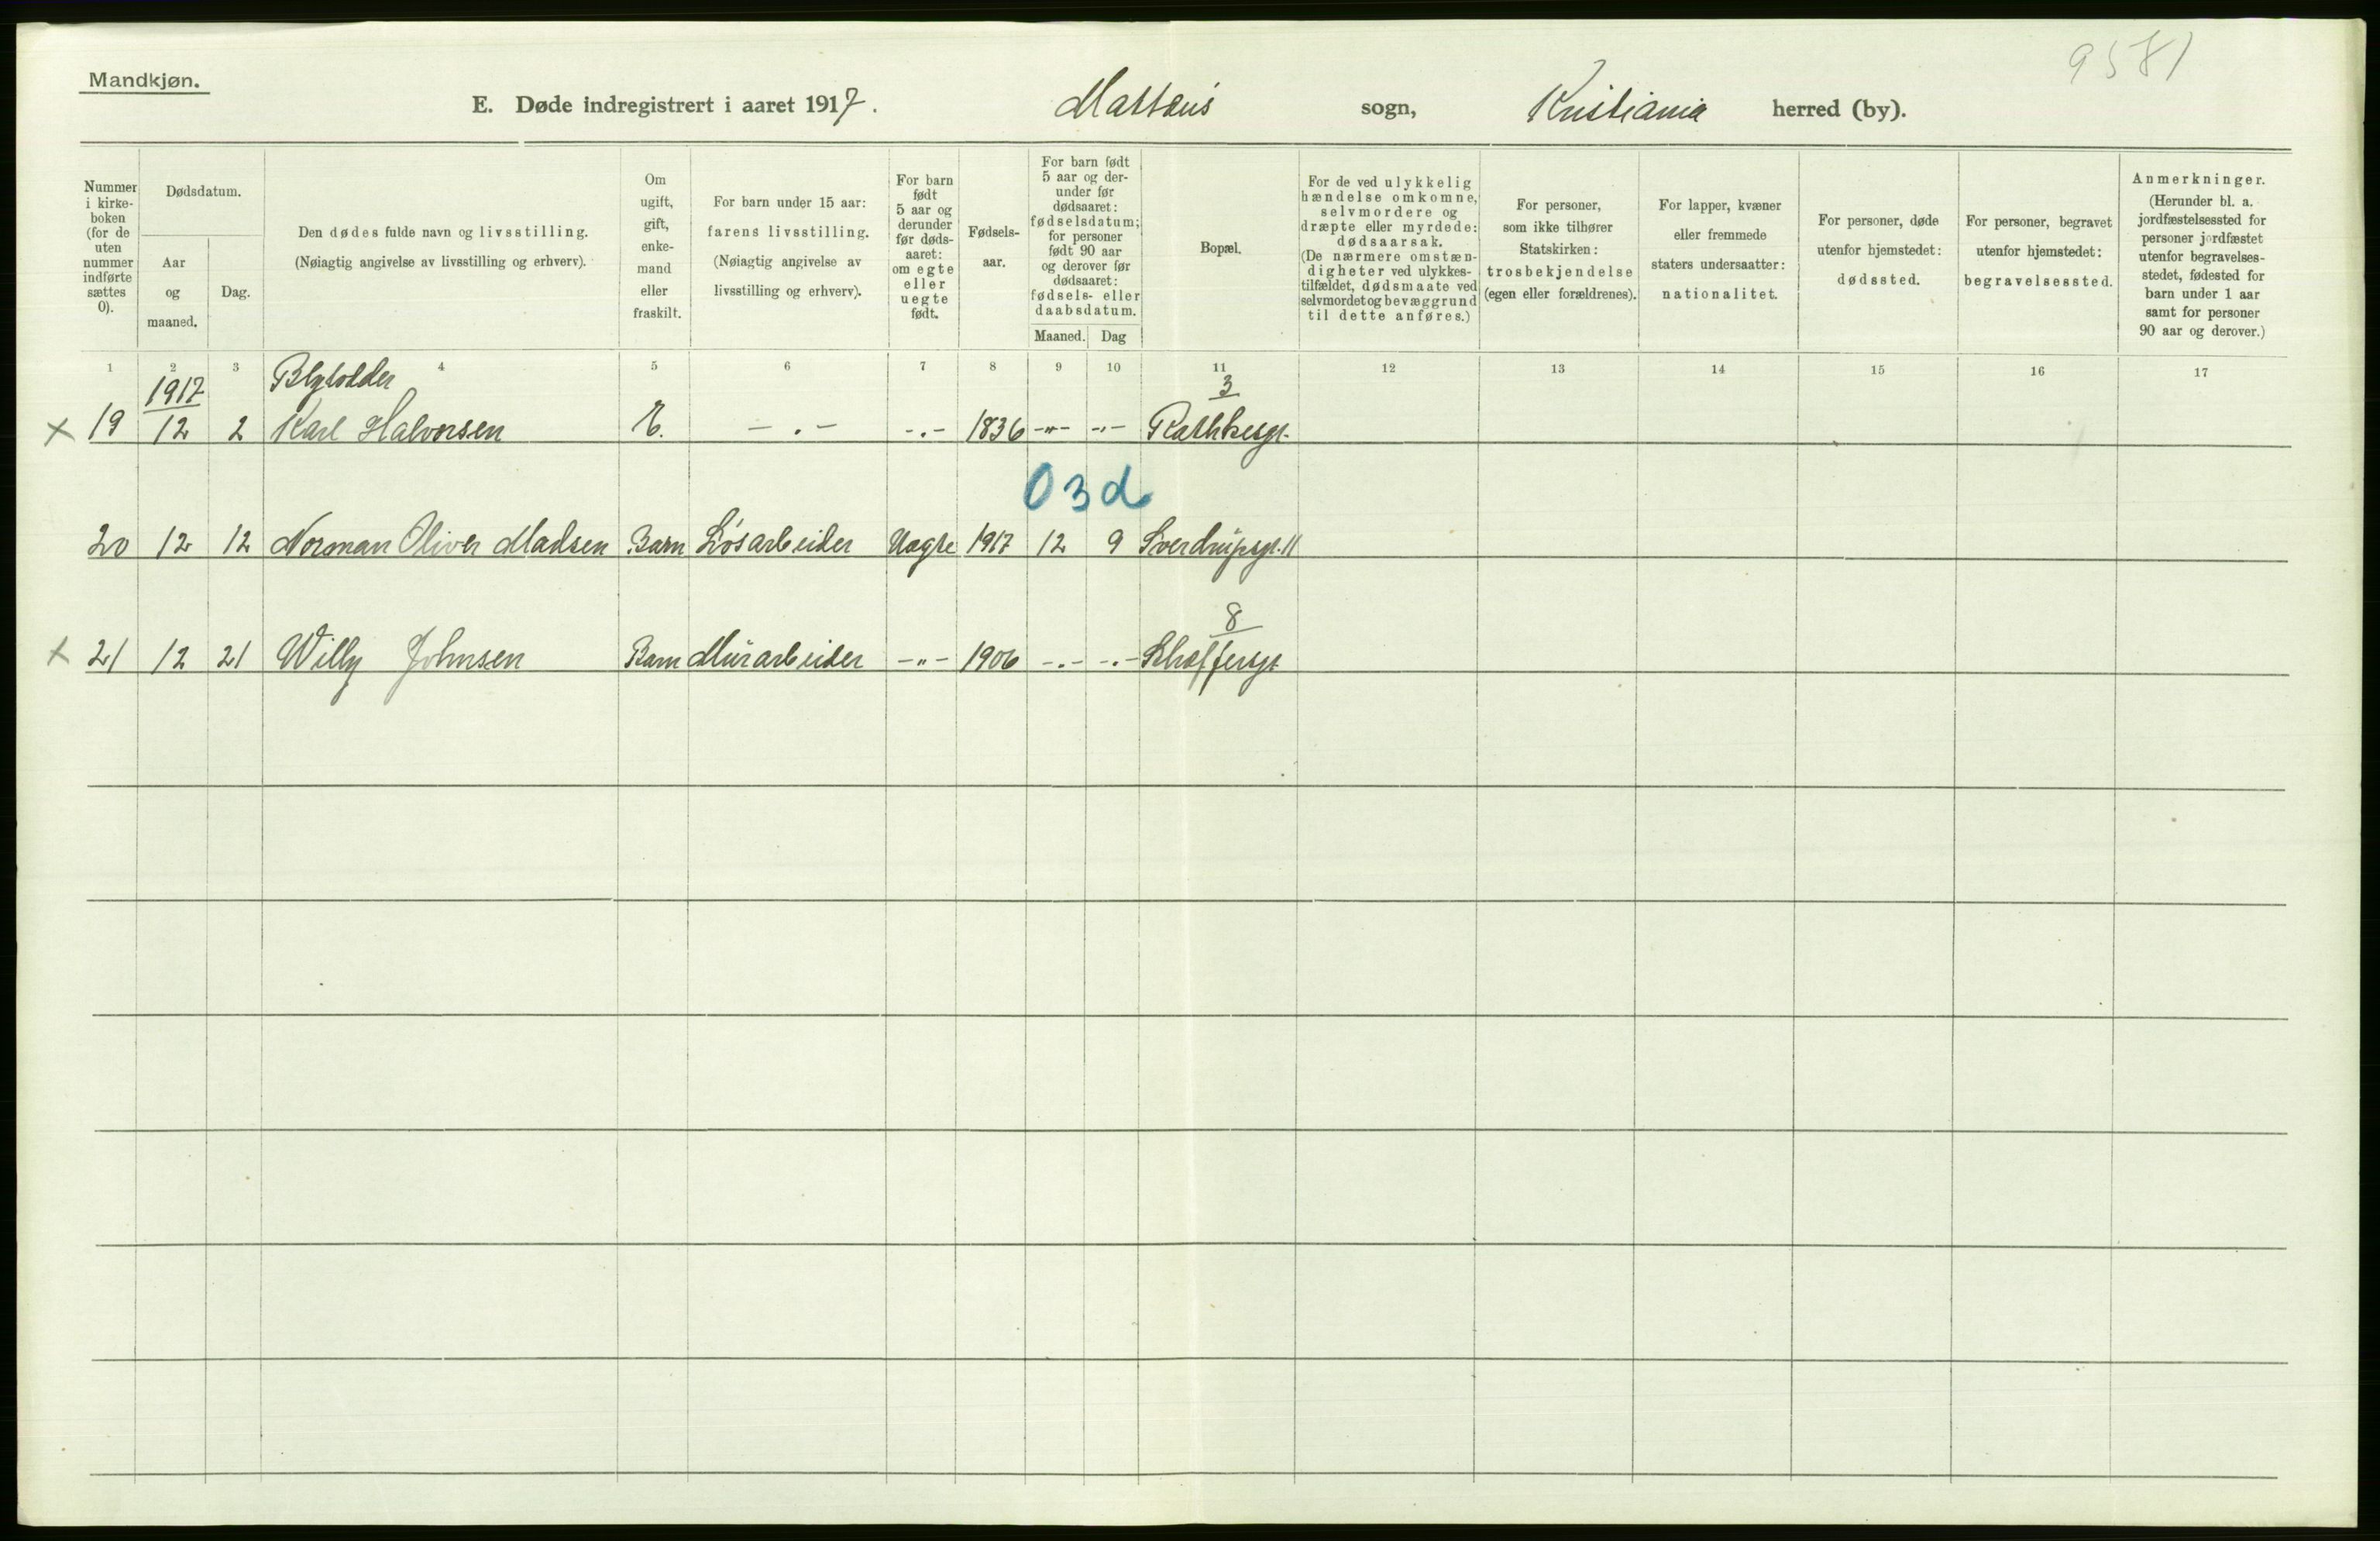 9581
Mandkjøn.
E. Døde indregistrert i aaret 1917. Mattæus sogn, Kristiania herred (by).
Nummer i kirke- boken (for de uten nummer indførte sættes 0).
Dødsdatum.
Aar og maaned.
Dag.
Den dødes fulde navn og livsstilling.
(Nøiagtig angivelse av livsstilling og erhverv).
Om ugift, gift, enke- mand eller fraskilt.
For barn under 15 aar: farens livsstilling.
(Nøiagtig angivelse av livsstilling og erhverv).
For barn født 5 aar og derunder før døds- aaret: om egte eller uegte født.
Fødsels- aar.
For barn født 5 aar og der- under før dødsaaret: fødselsdatum; for personer født 90 aar og derover før dødsaaret: fødsels- eller daabsdatum.
Maaned. Dag
Bopæl.
For de ved ulykkelig hændelse omkomne, selvmordere og dræpte eller myrdede: dødsaarsak.
(De nærmere omstæn- digheter ved ulykkes- tilfældet, dødsmaate ved selvmordet og bevæggrund til dette anføres.)
For personer, som ikke tilhører Statskirken: trosbekjendelse (egen eller forældrenes).
For lapper, kvæner eller fremmede staters undersaatter: nationalitet.
For personer, døde utenfor hjemstedet: dødssted.
For personer, begravet utenfor hjemstedet: begravelsessted.
Anmerkninger.
(Herunder bl. a. jordfæstelsessted for personer jordfæstet utenfor begravelses- stedet, fødested for barn under 1 aar samt for personer 90 aar og derover.)
1 2 3 4 5 6 7 8 9 10 11 12 13 14 15 16 17
1917 3
x 19 12 2 Karl Halvorsen E. - . - - . - 1836 - " - - " - Rathkesgt.
03d
20 12 12 Norman Oliver Madsen Barn Løsarbeider Uægte 1917 12 9 Sverdrupsgt. 11
8
x 21 12 21 Willy Johnsen Barn Murarbeider - " - 1906 - . - - . -